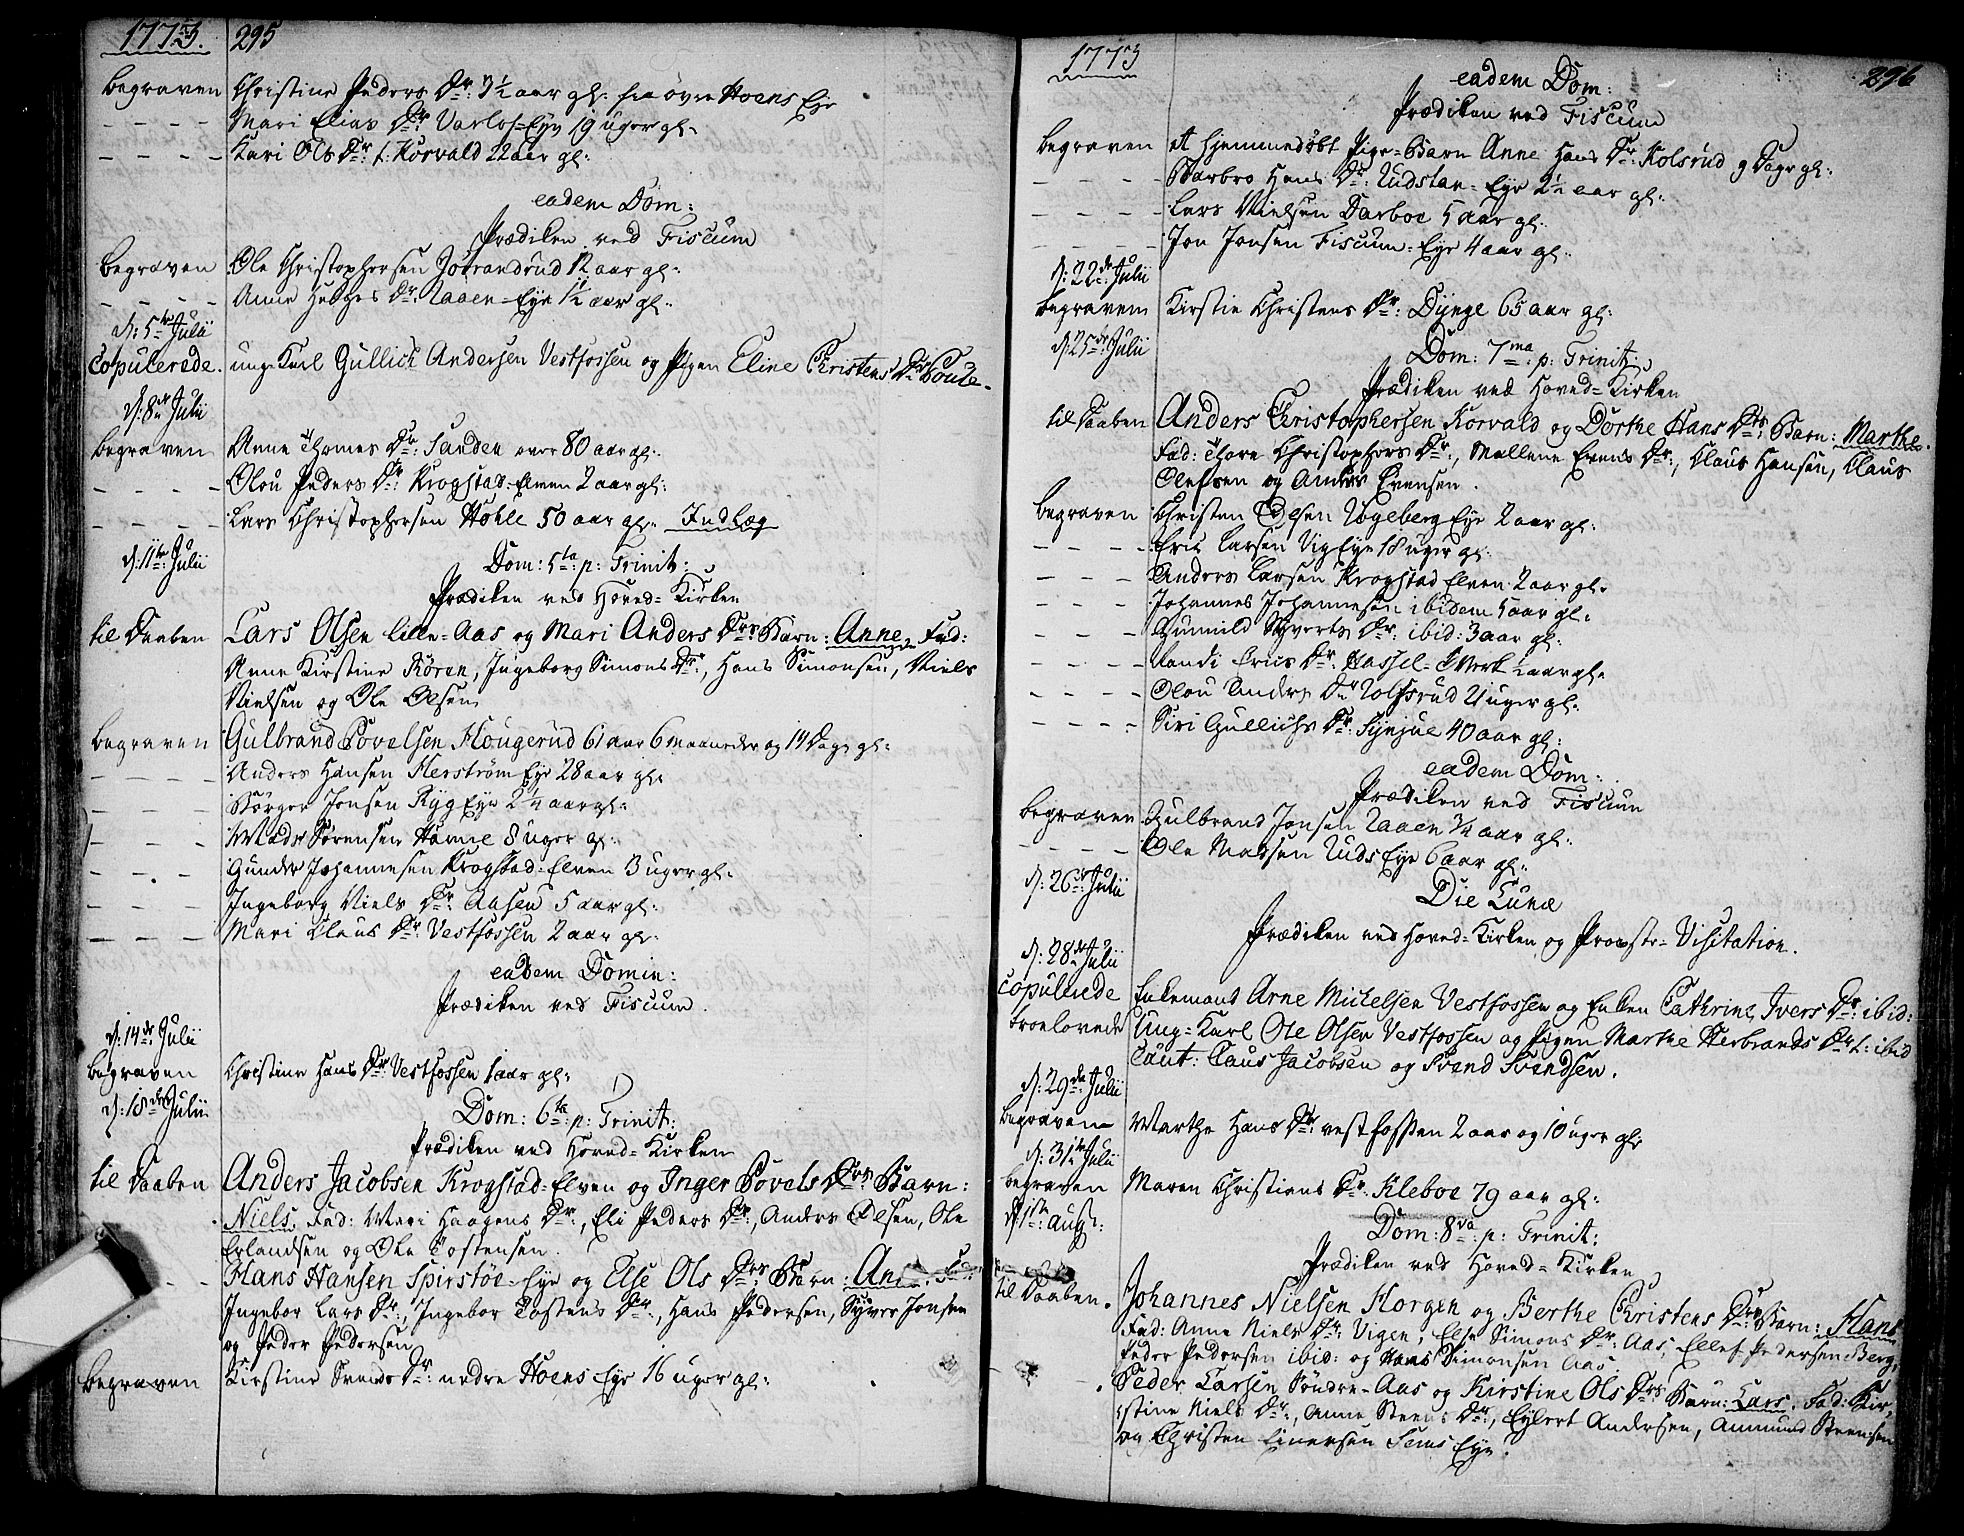 1773. 295
begraven Christine Peders Dr: 3½ aar gl: fra øvre Hoens Eye
- - - - Mari Elias Dr: Varlos=Eye 19 uger gl:
- - - - Kari Ols Dr: f: Korvald 22 aar gl:
eadem Dom:
Prædiken ved Fiscum
begraven Ole Christophersen Jørandrud 12 aar gl:
- - - - Anne Helges Dr: Aaen=Eye 1½ aar gl:
d: 5te Julii
copulerede. ung=Karl Gullich Andersen Vestfossen og Pigen Eline Christens Dr
d: 8de Julii
begraven Anne Thomes Dr: Sanden over 80 aar gl:
- - - - Olou Peders Dr: Krogstad=Elven 2 aar gl:
- - - - Lars Christophersen Hohle 50 aar gl: Indlæg
d: 11te Julii Dom: 5ta p: Trinit:
Prædiken ved Hoved=Kirken
til Daaben Lars Olsen lille=Aas og Mari Anders Drs Barn: Anne, Fad:
Anne Kirstine Kören, Ingeborg Simons Dr:, Hans Simonsen, Niels
Nielsen og Ole Olsen
begraven Gulbrand Povelsen Hougerud 61 aar 6 maaneder og 14 Dage gl:
- - - - Anders Hansen Herstrøm Eye 28 aar gl:
- - - Børger Jonsen Ryg Eye 2¼ aar gl:
- - - Mads Sørensen Hamre 8 uger gl:
- - - Gunder Johannesen Krogstad=Elven 3 uger gl:
- - - Ingeborg Niels Dr: Aasen 5 aar gl:
- - - - Mari Claus Dr: Vestfossen 2 aar gl:
eadem Domin:
Prædiken ved Fiscum.
d: 14de Julii
begraven Christine Hans Dr: Vestfossen 1 aar gl:
d: 18de Julii
Dom: 6ta p: Trinit:
Prædiken ved Hoved=Kirken
til Daaben Anders Jacobsen Krogstad=Elven og Inger Povels Drs Barn:
Niels. Fad: Mari Haagens Dr:, Eli Peders Dr:, Anders Olsen, Ole
Erlandsen og Ole Tostensen.
- - Hans Hansen Spirstøe=Eye og Else Ols Drs Barn:
Ingebor Lars Dr:, Ingebor Tostens Dr:, Hans Pedersen, Syver Jonsen
og Peder Pedersen
begraven Kirstine Svends Dr: nedre Hoens Eye 16 uger gl:
1773 296
eadem Dom:
Prædiken ved Fiscum
begraven et hjemmedøbt Pige=Barn Anne Hans Dr: Kolsrud 9 Dage gl:
- - - - Barbro Hans Dr: Eye 2½ aar gl:
- - - - Lars Nielsen Darboe 5 aar gl:
- - - - Jon Jonsen Fiscum=Eye 4 aar gl:
d: 22de Julii
begraven Kirstie Christens Dr: Dynge 65 aar gl:
d: 25de Julii
Dom: 7ma p: Trinit:
Prædiken ved Hoved=Kirken
til Daaben Anders Christophersen Korvald og Dorthe Hans Drs Barn: Marthe.
Fad: Thore Christophers Dr:, Mallene Evens Dr:, Claus Hansen, Claus
Olefsen og Anders Evensen.
begraven Christen Olsen Ugeberg Eye 2 aar gl:
- - - - Eric Larsen Vig Eye 18 uger gl:
- - - Anders Larsen Krogstad Elven 2 aar gl:
- - - Johannes Johannesen ibidem 5 aar gl:
- - - Gunnild Syverts Dr: ibid: 3 aar gl:
- - - - Randi Erics Dr: Hassel=Werk ½ aar gl:
- - - - Olou Anders Dr: Rolfsrud uger gl:
- - - - Siri Gullichs Dr: 40 aar gl:
eadem Dom:
Prædiken ved Fiscum
begraven Gulbrand Jonsen Aaen ¾ aar gl:
- - - - Ole Madsen Ruds Eye 6 aar gl:
d: 26de Julii
Die Lunæ
Prædiken ved Hoved=Kirken og Provste=Visitation.
d: 28de Julii
copulerede Enkemand Arne Michelsen Vestfossen og Enken Cathrine Ivers Dr: ibid:
troelovede Ung=Karl Ole Olsen Vestfossen og Pigen Marthe Herbrands Dr: f: ibid
Caut: Claus Jacobsen og Svend Svendsen.
d: 29de Julii
begraven Marthe Hans Dr: vestfossen 2 aar og 10 uger gl:
d: 31te Julii
begraven Maren Christians Dr: Kleboe 79 aar gl:
d: 1ste Aug:
Dom: 8va p: Trinit:
Prædiken ved Hoved=Kirken
til Daaben. Johannes Nielsen Horgen og Berthe Christens Drs Barn: Hans
Fad: Anne Niels Dr: Vigen, Else Simons Dr: Aas, Ellef Pedersen Berg,
Peder Pedersen ibid: og Hans Simonsen Aas.
Peder Larsen Søndre=Aas og Kirstine Ols Drs Barn: Lars. Fad: Kir-
stine Niels Dr:, Anne Steens Dr:, Eylert Andersen, Ammund Steensen
og Christen Einersen Sems Eye.